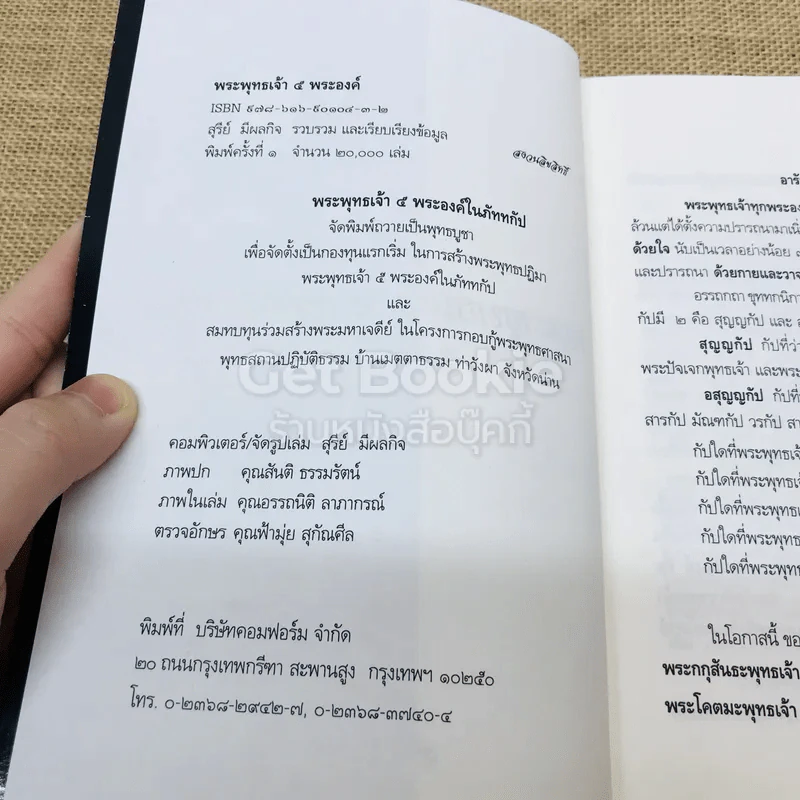 พระพุทธเจ้า ๕ พระองค์
ISBN ๙๗๘-๖๑๖-๙๐๑๐๔-๓-๒
สุรีย์ มีผลกิจ รวบรวม และเรียบเรียงข้อมูล
พิมพ์ครั้งที่ ๑ จำนวน ๒๐,๐๐๐ เล่ม
สงวนลิขสิทธิ์
พระพุทธเจ้า ๕ พระองค์ในภัททกัป
จัดพิมพ์ถวายเป็นพุทธบูชา
เพื่อจัดตั้งเป็นกองทุนแรกเริ่ม ในการสร้างพระพุทธปฏิมา
พระพุทธเจ้า ๕ พระองค์ในภัททกัป
และ
สมทบทุนร่วมสร้างพระมหาเจดีย์ ในโครงการกอบกู้พระพุทธศาสนา
พุทธสถานปฏิบัติธรรม บ้านเมตตาธรรม ท่าวังผา จังหวัดน่าน
Get Bookie
ร้านหนังสือบุ๊คกี้
คอมพิวเตอร์/จัดรูปเล่ม สุรีย์ มีผลกิจ
ภาพปก คุณสันติ ธรรมรัตน์
ภาพในเล่ม คุณอรรถนิติ ลาภากรณ์
ตรวจอักษร คุณฟ้ามุ่ย สุกัณศีล
พิมพ์ที่ บริษัทคอมฟอร์ม จำกัด
๒๐ ถนนกรุงเทพกรีฑา สะพานสูง กรุงเทพฯ ๑๐๒๕๐
โทร. ๐-๒๓๖๘-๒๙๔๒-๗, ๐-๒๓๖๘-๓๗๔๐-๔
พระพุทธเจ้าทุกพระอง
ล้วนแต่ได้ตั้งความปรารถนามาเนิ่
ด้วยใจ นับเป็นเวลาอย่างน้อย
และปรารถนา ด้วยกายและวาจ
อรรถกถา ขุททกนิกา
กัปมี ๒ คือ สุญญกัป และ
สุญญกัป กัปที่ว่
พระปัจเจกพุทธเจ้า และพระ
อสุญญกัป กัปที่
สารกัป มัณฑกัป วรกัป สา
กัปใดที่พระพุทธเจ้
กัปใดที่พระพุทธเจ
กัปใดที่พระพุทธเ
กัปใดที่พระพุทธเ
กัปใดที่พระพุทธ
ในโอกาสนี้ ขอ
พระกกุสันธะพุทธเจ้า
พระโคตมะพุทธเจ้า